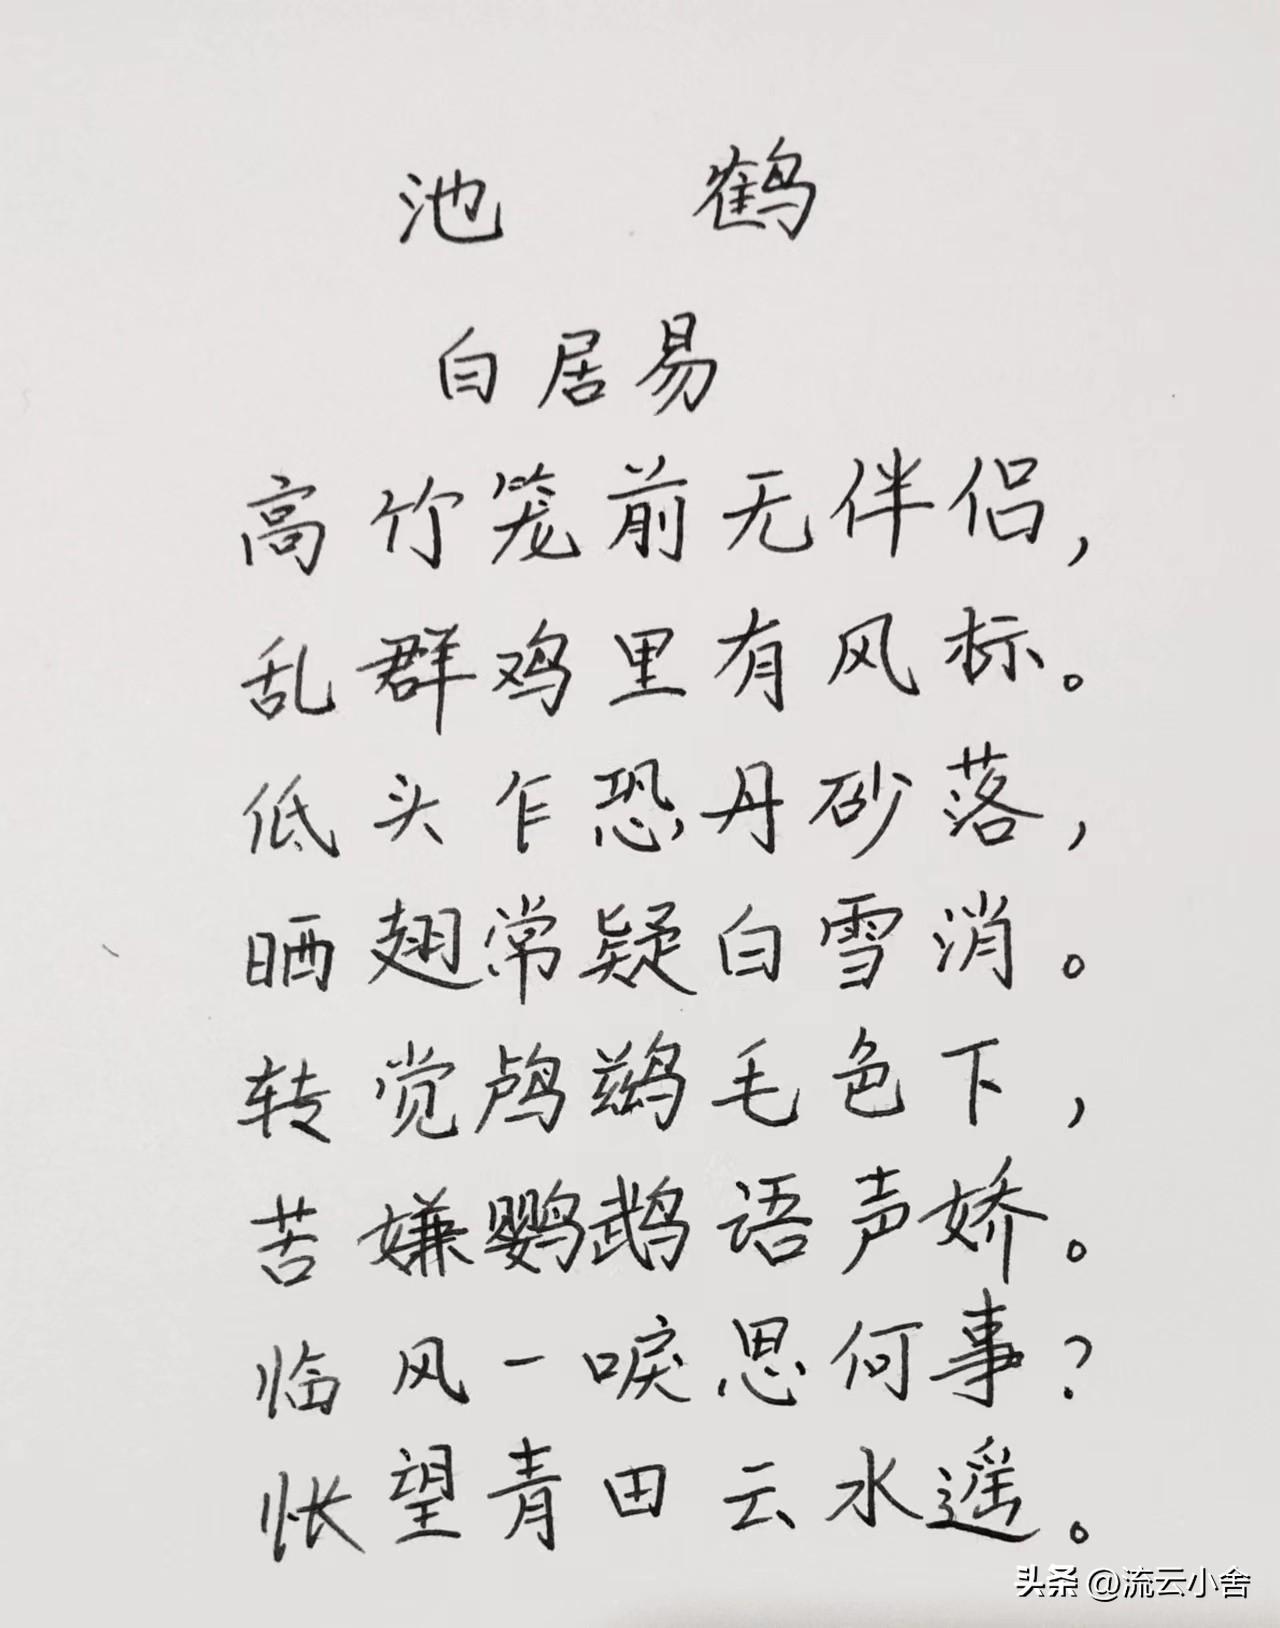 池 鹤
白居易
高竹笼前无伴侣，
乱群鸡里有风标。
低头乍恐丹砂落，
晒翅常疑白雪消。
转觉鸬鹚毛色下，
苦嫌鹦鹉语声娇。
临风一唳思何事？
怅望青田云水遥。
头条 @流云小舍